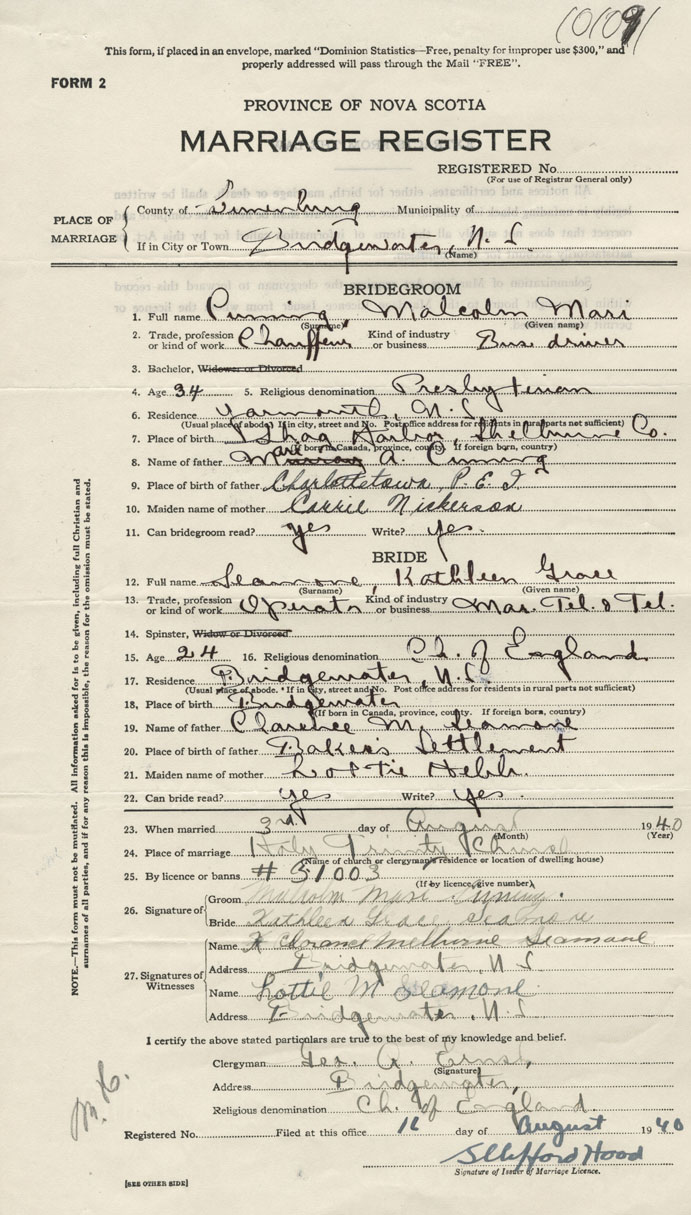 10109
This form, if placed in an envelope, marked "Dominion Statistics—Free, penalty for improper use $300," and
properly addressed will pass through the Mail "FREE".
FORM 2
PROVINCE OF NOVA SCOTIA
MARRIAGE REGISTER
REGISTERED No.
(For use of Registrar General only)
PLACE OF MARRIAGE
County of Lunenburg Municipality of
If in City or Town Bridgewater, N. S.
(Name)
BRIDEGROOM
1. Full name Cunning, Malcolm Mari
(Surname) (Given name)
2. Trade, profession or kind of work Chauffeur Kind of industry or business Bus driver
3. Bachelor, Widower or Divorced
4. Age 34 5. Religious denomination Presbyterian
6. Residence Yarmouth, N. S.
(Usual place of abode. If in city, street and No. Post office address for residents in rural parts not sufficient)
7. Place of birth Shag Harbor, Shelburne Co.
(If born in Canada, province, county. If foreign born, country)
8. Name of father Mari A. Cunning
9. Place of birth of father Charlottetown, P. E. I.
10. Maiden name of mother Carrie Nickerson
11. Can bridegroom read? yes Write? yes.
BRIDE
12. Full name Seamone, Kathleen Grace
(Surname) (Given name)
13. Trade, profession or kind of work Operator Kind of industry or business Mar. Tel. & Tel.
14. Spinster, Widow or Divorced
15. Age 24 16. Religious denomination Ch. of England
17. Residence Bridgewater, N.S.
(Usual place of abode. If in City, street and No. Post office address for residents in rural parts not sufficient)
18. Place of birth Bridgewater
(If born in Canada, province, county. If foreign born, country)
19. Name of father Clarence M. Seamone
20. Place of birth of father Baker's Settlement
21. Maiden name of mother Lottie Hebb.
22. Can bride read? yes Write? yes.
23. When married 3rd day of August 1940
(Month) (Year)
24. Place of marriage Holy Trinity Church
(Name of church or clergyman's residence or location of dwelling house)
25. By licence or banns # 51003
(If by licence, give number)
26. Signature of
Groom Malcolm Mari Cunning.
Bride Kathleen Grace Seamone
27. Signatures of Witnesses
Name Clarence Melburne Seamone
Address Bridgewater, N. S.
Name Lottie M Seamone.
Address Bridgewater, N.S.
I certify the above stated particulars are true to the best of my knowledge and belief.
Clergyman Geo. A. Ernst,
(Signature)
Address Bridgewater,
Religious denomination Ch. of England.
Registered No. Filed at this office 16 day of August 1940
S Clifford Hood
Signature of Issuer of Marriage Licence.
[SEE OTHER SIDE]
NOTE.—This form must not be mutilated. All information asked for is to be given, including full Christian and
surnames of all parties, and if for any reason this is impossible, the reason for the omission must be stated.